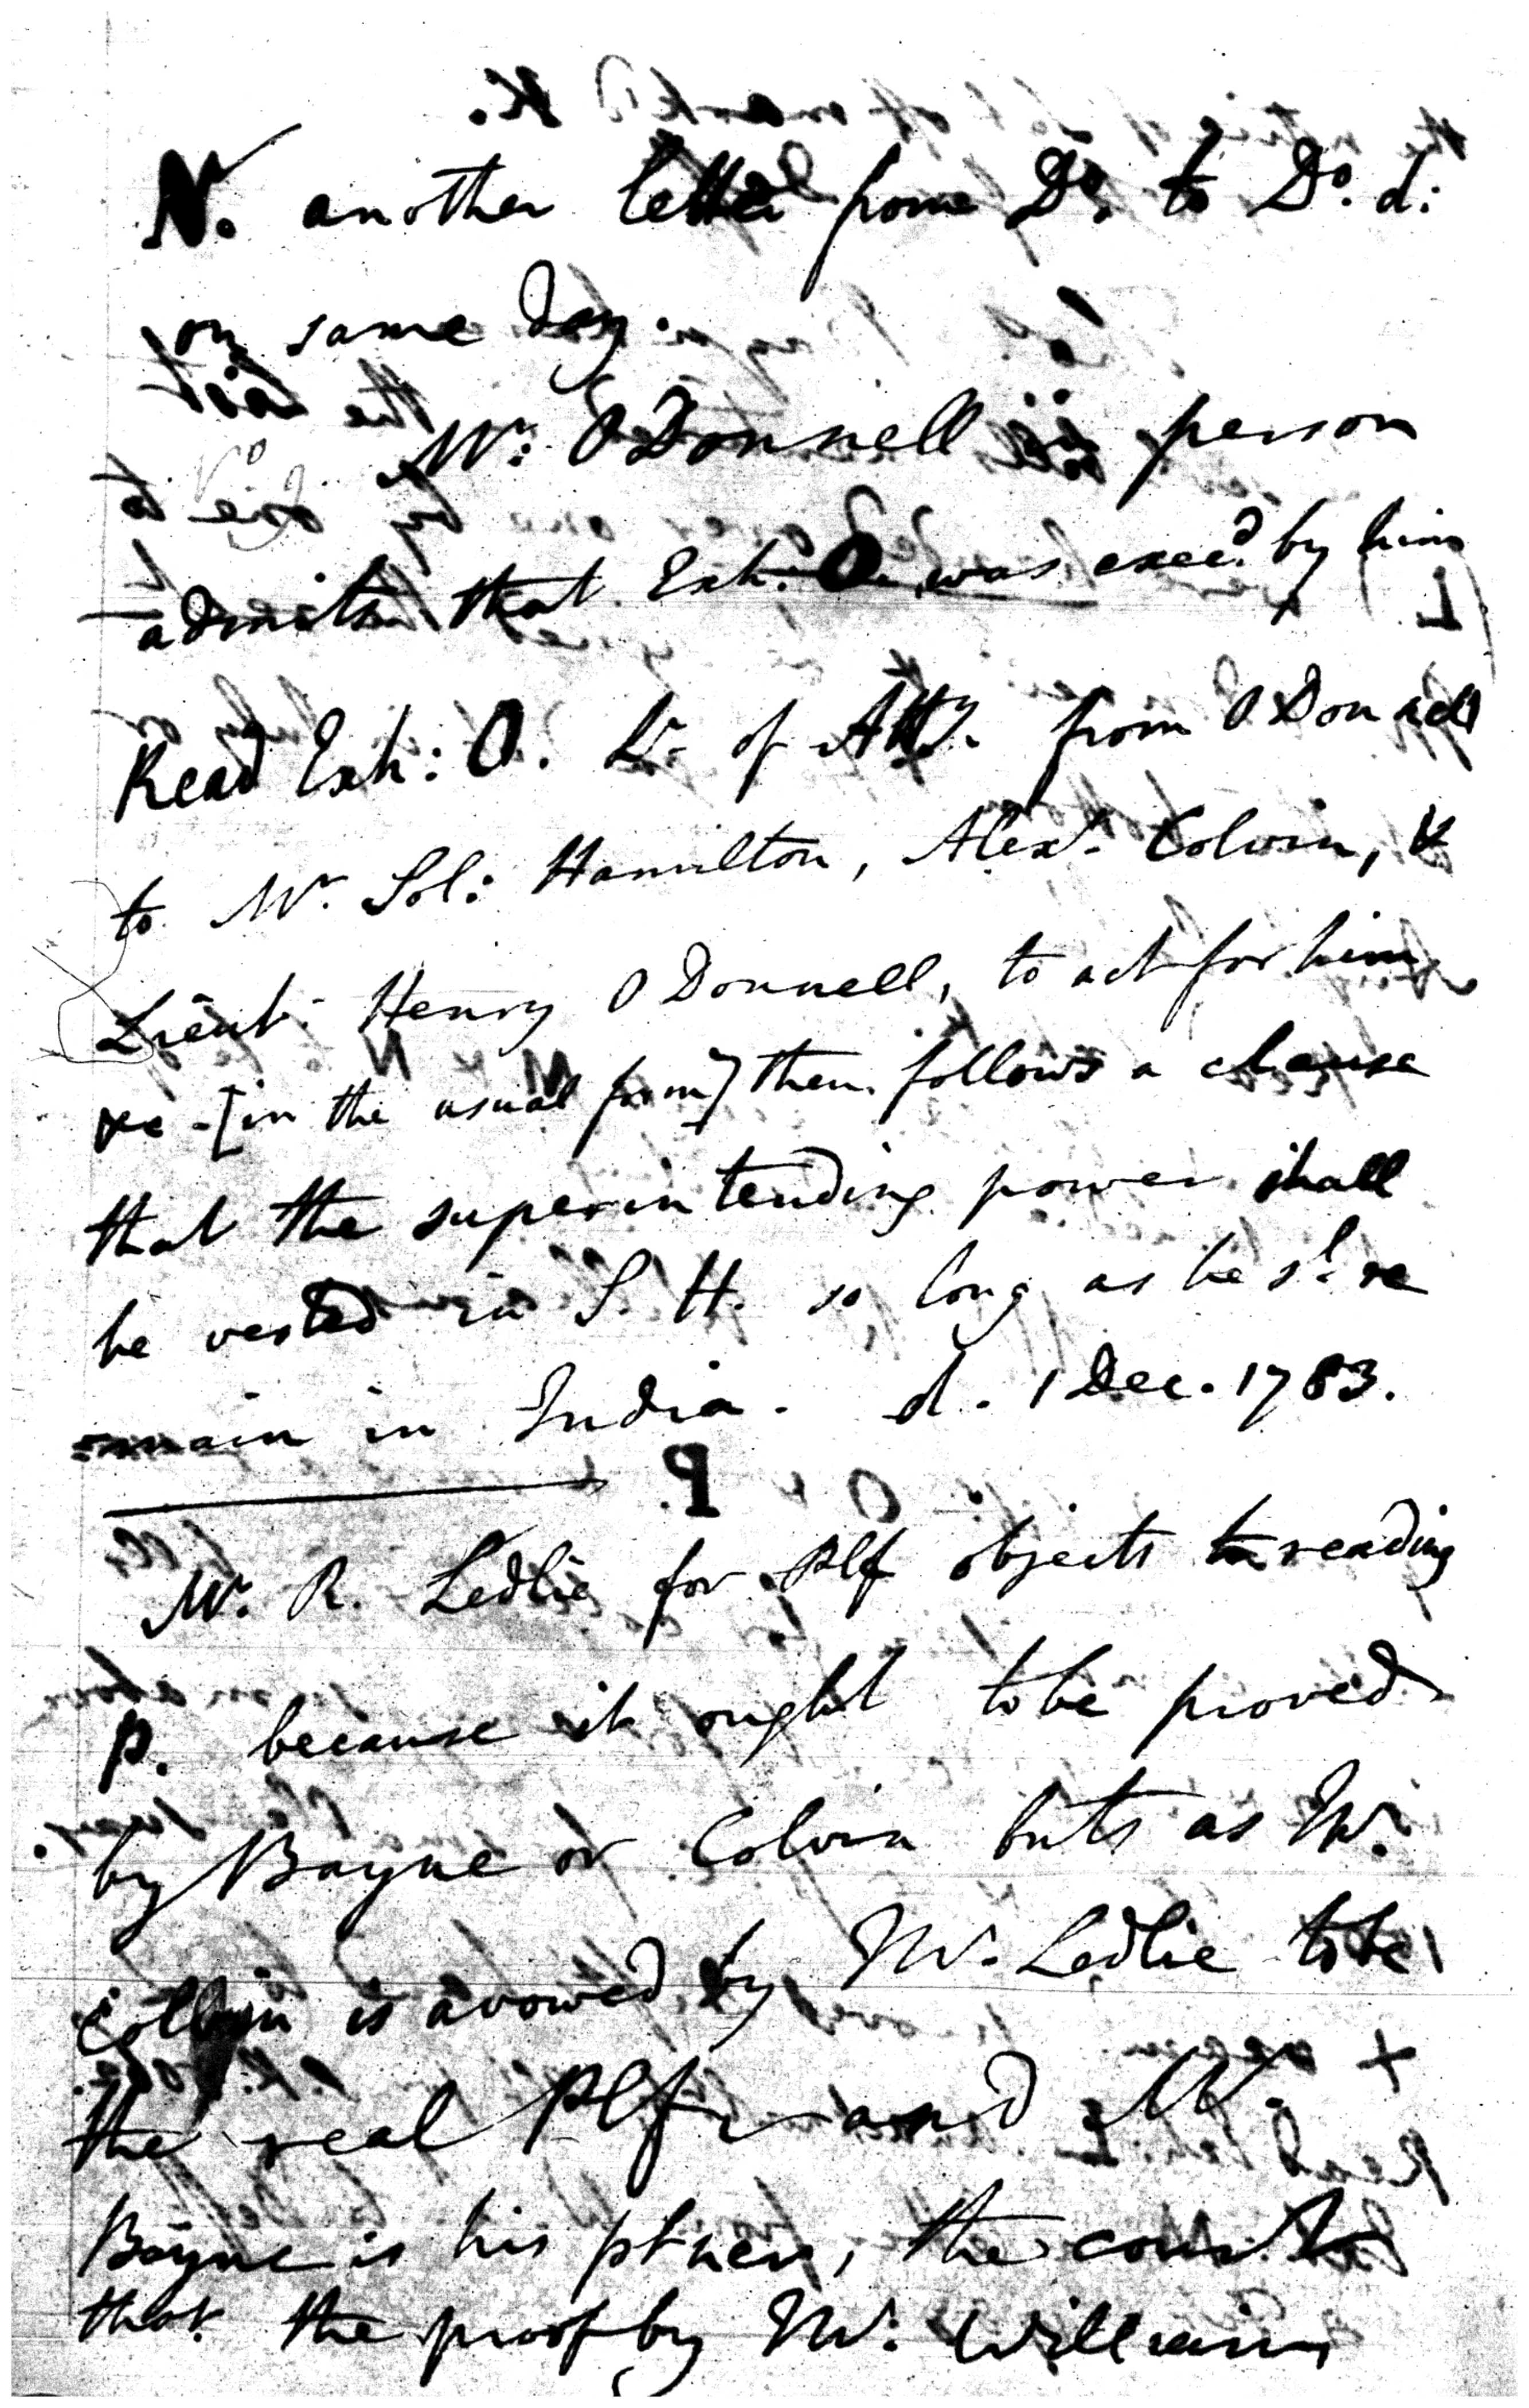 N. another letter from Do. to Do. d:
on same day.
Mr: O Donnell in person
admits that Exh. O. was execd by him
Read Exh: O. Lr. of Atty. from O Donnell
to Mr. Sol: Hamilton, Alexr. Colvin, &
Lieut. Henry O Donnell, to act for him
&c - [in the usual form] then follows a clause
that the superintending power shall
be vested in S. H. so long as he sd. re
=main in India. d. 1 Dec. 1783.
P
Mr. R. Ledlie for Plf objects to reading
P. because it ought to be proved
by Bayne or Colvin but as Mr.
Colvin is avowed by Mr. Ledlie to be
the real Plf and Mr.
Bayne is his ptner, the court
that the proof by Mr. Williams